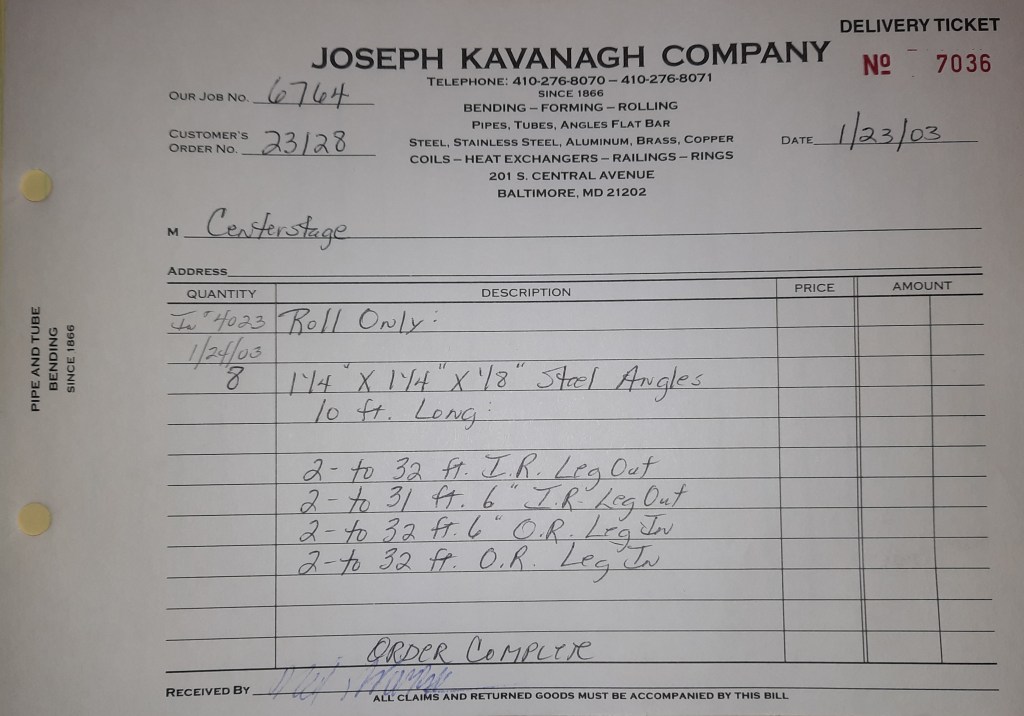 DELIVERY TICKET
JOSEPH KAVANAGH COMPANY
Nº 7036
TELEPHONE: 410-276-8070 – 410-276-8071
SINCE 1866
OUR JOB NO. 6764
BENDING – FORMING – ROLLING
PIPES, TUBES, ANGLES FLAT BAR
CUSTOMER'S
ORDER NO. 23128
STEEL, STAINLESS STEEL, ALUMINUM, BRASS, COPPER
DATE 1/23/03
COILS – HEAT EXCHANGERS – RAILINGS – RINGS
201 S. CENTRAL AVENUE
BALTIMORE, MD 21202
M Centerstage
ADDRESS
QUANTITY DESCRIPTION PRICE AMOUNT
In # 4023 Roll Only:
1/24/03
8 1 1/4" X 1 1/4" X 1/8" Steel Angles
10 ft. Long:
2- to 32 ft. I.R. Leg Out
2- to 31 ft. 6" I.R. Leg Out
2- to 32 ft. 6" O.R. Leg In
2- to 32 ft. O.R. Leg In
ORDER COMPLETE
RECEIVED BY
ALL CLAIMS AND RETURNED GOODS MUST BE ACCOMPANIED BY THIS BILL
PIPE AND TUBE
BENDING
SINCE 1866